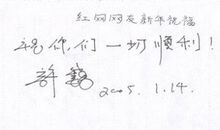 红网网友新年祝福
祝你们一切顺利!
許
2005. 1.14.